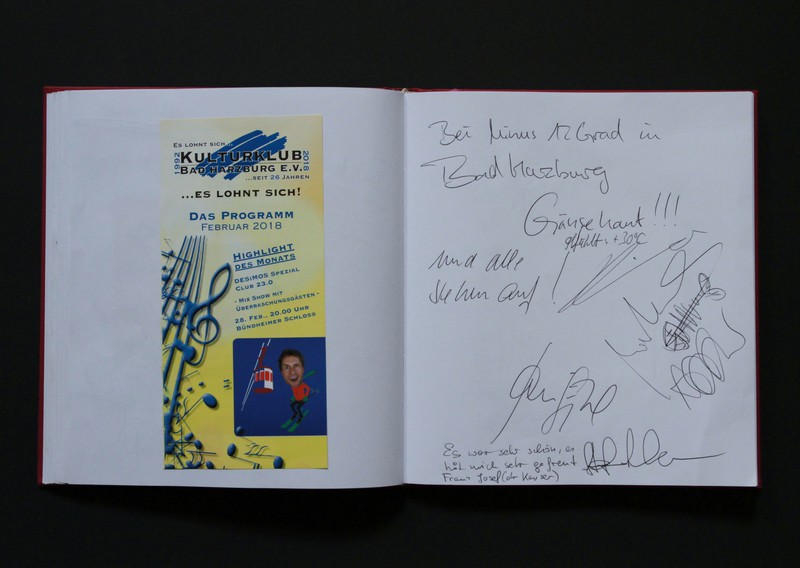 ES LOHNT SICH...
1992 KULTURKLUB 2018
BAD HARZBURG E.V.
...SEIT 26 JAHREN
...ES LOHNT SICH!
DAS PROGRAMM
FEBRUAR 2018
HIGHLIGHT
DES MONATS
DESIMOS SPEZIAL
CLUB 23.0
- MIX SHOW MIT
ÜBERRASCHUNGSGÄSTEN -
28. FEB., 20.00 UHR
BÜNDHEIMER SCHLOSS
Bei Minus 12 Grad in
Bad Harzburg
Gänsehaut!!!
gefühlt: +30°C
und alle
stehen auf!
Es war sehr schön, es
hat mich sehr gefreut
Franz Josef (der Kaiser)